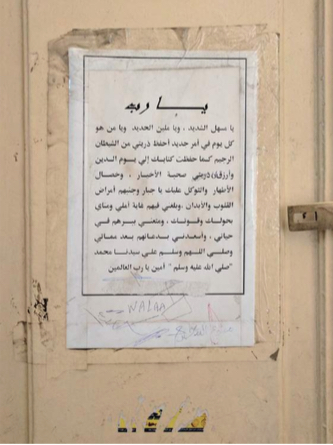 يا رب
يا مسهل الشديد ، ويا ملين الحديد ويا من هو
كل يوم في أمر جديد أحفظ ذريتي من الشيطان
الرجيم كما حفظت كتابك إلي يوم الدين
وأرزق ذريتي صحبة الأخيار ، وخصال
الأطهار والتوكل عليك يا جبار وجنبهم أمراض
القلوب والأبدان ،وبلغني فيهم غاية أملي ومناي
بحولك وقوتك ، ومتعني ببرهم في
حياتي ، وأسعدني بدعائهم بعد مماتي
وصلي اللهم وسلم علي سيدنا محمد
"صلي الله عليه وسلم " أمين يا رب العالمين
WALAA